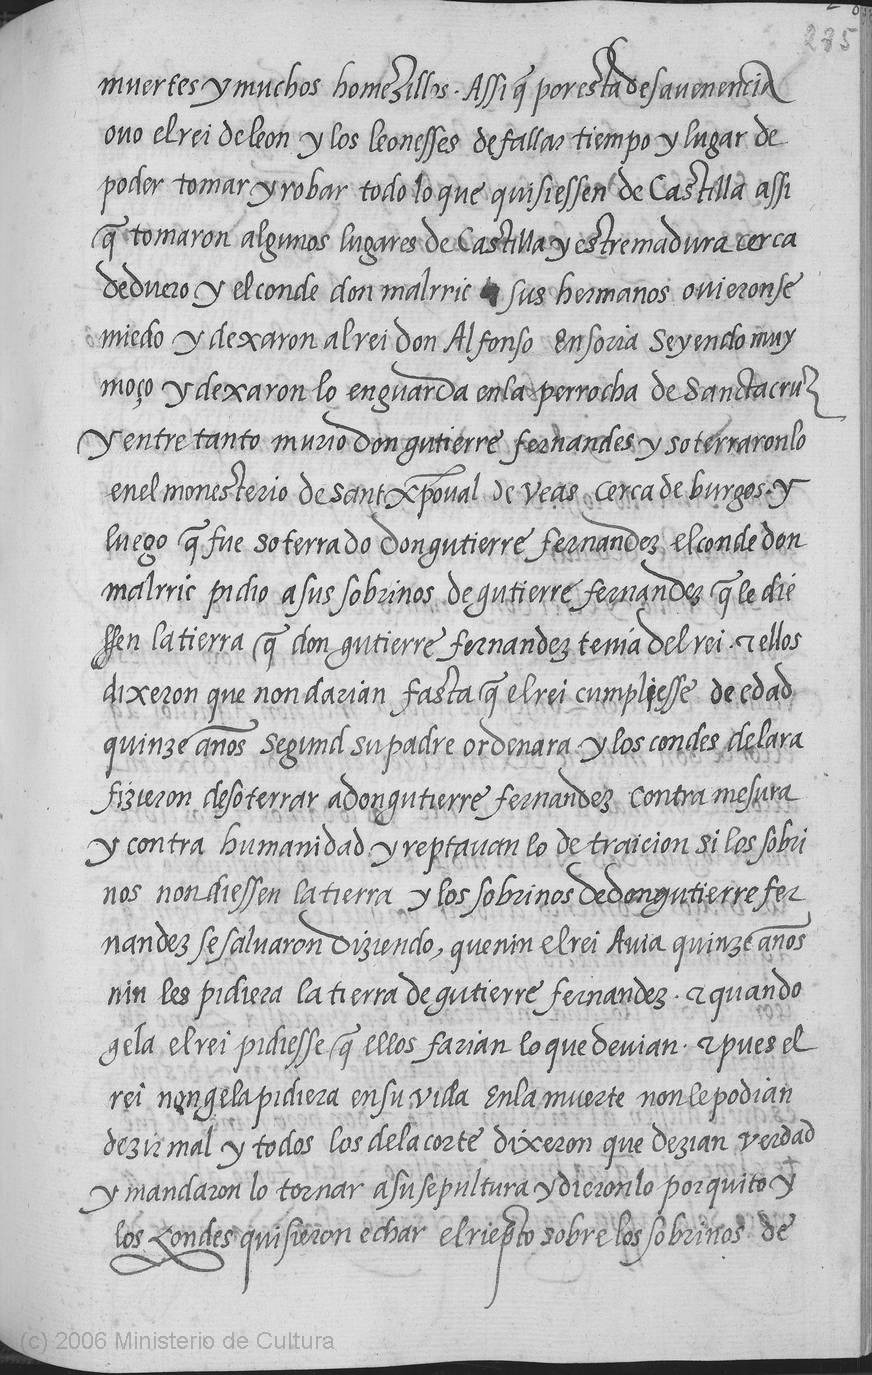 235
muertes y muchos homezillos. Assi q̃ por esta desavenencia
ovo el rei de leon y los leonesses de fallar tiempo y lugar de
poder tomar y robar todo lo que quisiessen de Castilla assi
q̃ tomaron algunos lugares de Castilla y estremadura cerca
de duero y el conde don malrric sus hermanos ovieronse
miedo y dexaron al rei don Alfonso en soria Seyendo muy
moço y dexaron lo en guarda en la perrocha de Sancta cruz
y entre tanto murio don gutierre fernandes y soterraronlo
en el monesterio de Sant Xp̃oual de veas cerca de burgos. y
luego q̃ fue soterrado don gutierre fernandez el conde don
malrric pidio a sus sobrinos de gutierre fernandez q̃ le die
ssen la tierra q̃ don gutierre fernandez tenia del rei. & ellos
dixeron que non darian fasta q̃ el rei cumpliesse de edad
quinze años Segund su padre ordenara. y los condes de lara
fizieron desoterrar a don gutierre fernandez contra mesura
y contra humanidad y reptauan lo de traicion si los sobri
nos non diessen la tierra y los sobrinos de don gutierre fer
nandez se saluaron diziendo, que nin el rei Auia quinze años
nin les pidiera la tierra de gutierre fernandez. & quando
gela el rei pidiesse q̃ ellos farian lo que deuian. & pues el
rei non gela pidiera en su vida En la muerte non le podian
dezir mal y todos los de la corte dixeron que dezian verdad
y mandaron lo tornar a su sepultura y dieronlo por quito y
los Condes quisieron echar el riepto sobre los sobrinos de
(c) 2006 Ministerio de Cultura